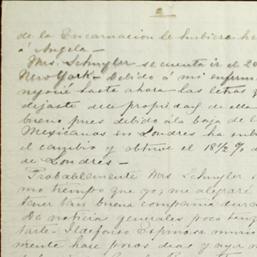 2
de la Encarnacion se hubiera he
á Angela -
Mrs. Schuyler se cuenta ir el 20
New York - Debido á mi enferm
hasta ahora las letras q
dejaste de propiedad de ella
bueno pues debido a la baja de l
Mexicanas en Londres ha sub
el cambio y obtuve el 18½ %
de Londres -
Probablemente Mrs Schuyler i
mo tiempo que yo; me alegraré
tener tan buena compañia dura
De noticia generales poco teng
tarte - Ildefonso Espinosa muri
mente hace pocos dias y ayer